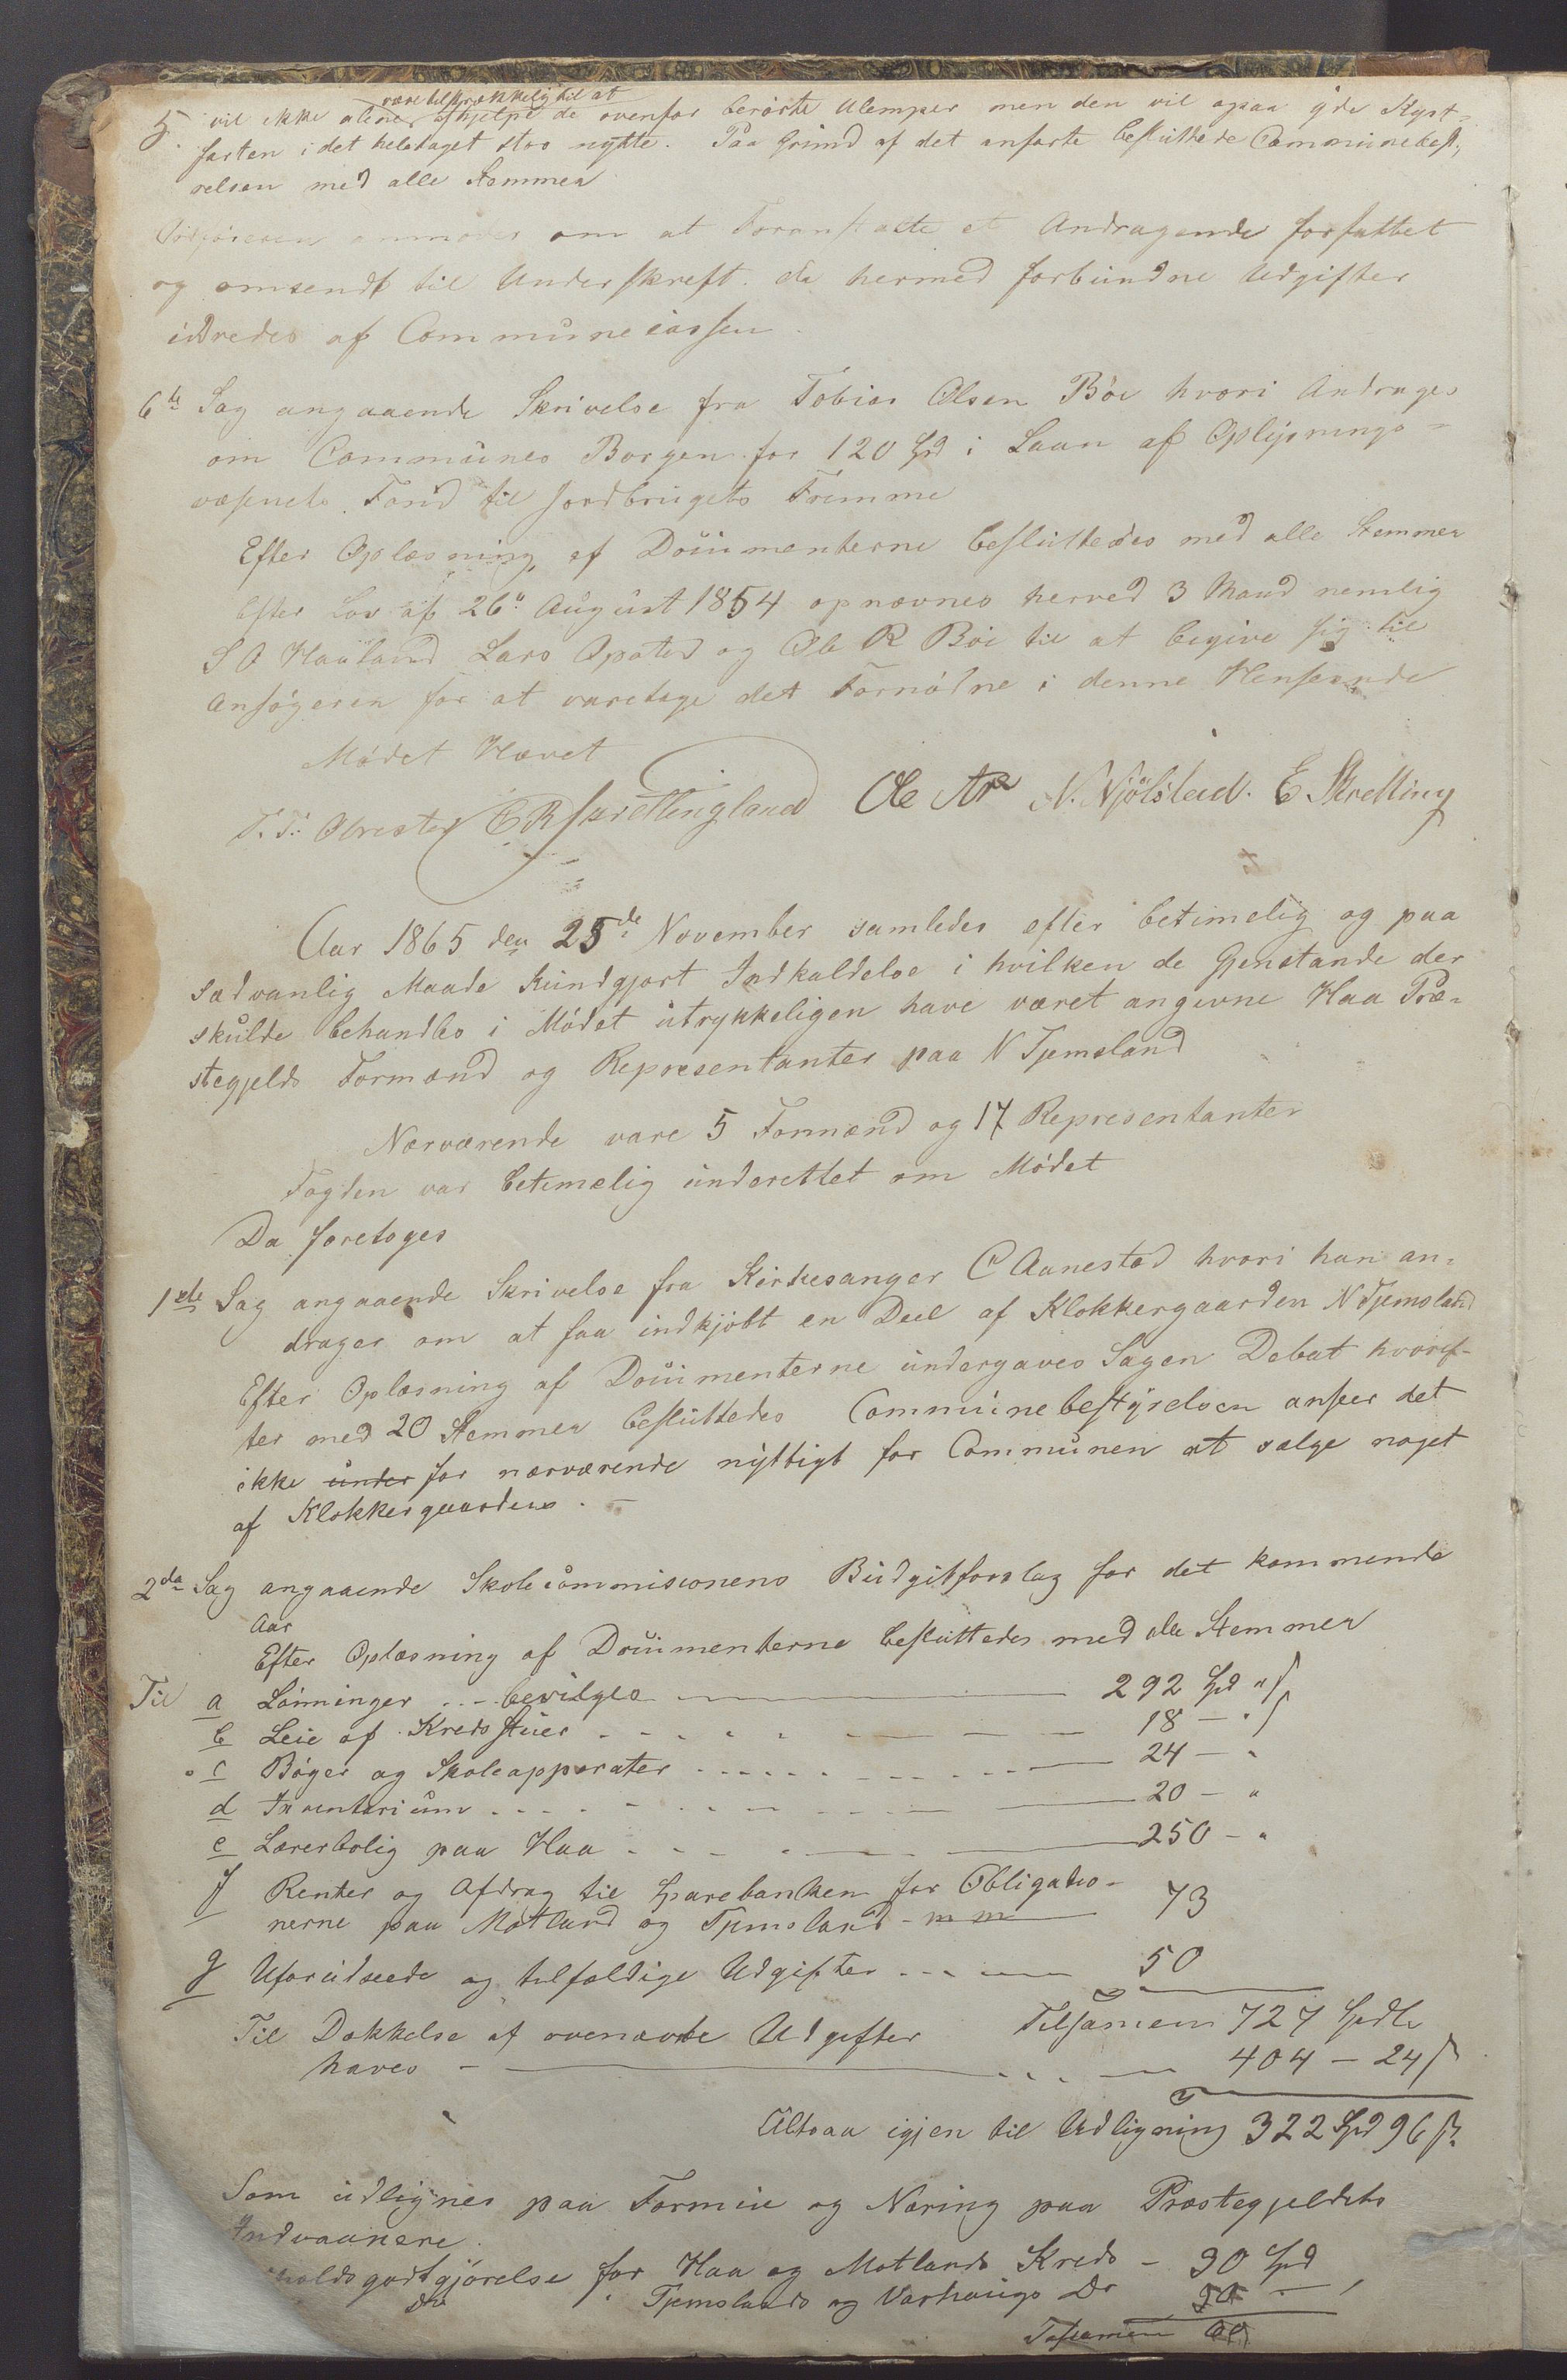 være tilstrækkelig til at
5. vil ikke alene afhjelpe de ovenfor berørte Ulemper men den vil ogsaa yde Kyst-
farten i det heletaget stor nytte. Paa Grund af det anførte besluttede Communebesty-
relsen med alle Stemmer
anmodes om at Foranstalte et Andragende forfattet
og omsendt til Underskreft. de hermed forbundne Udgifter
udredes af Communecassen.
6te Sag angaaende Skrivelse fra Tobias Olsen Böe hvori Andrages
om Communes Borgen for 120 Spd i Laan af Oplysnings-
væsnets Fond til Jordbrugets Fremme
Efter Oplæsning af Documenterne besluttedes med alle Stemmer
Efter Lov af 26de August 1854 opnævnes herved 3 Mand nemlig
S O Haaland Lars Opsted og Ole R Böe til at begive sig til
Ansøgeren for at varetage det Fornødne i denne Henseende
Mødet Hævet
T. T. Obrestad E R Skrettingland Ole Ar N. Njölstad. E Skretting
Aar 1865 den 25de November samledes efter betimelig og paa
sædvanlig Maade kundgjort Indkaldelse i hvilken de Gjenstande der
skulde behandles i Mødet utrykkeligen have været angivne Haa Præ-
stegjelds Formænd og Representanter paa N Tjemsland
Nærværende vare 5 Formænd og 17 Representanter
Fogden var betimelig underettet om Mødet
Da foretoges
1ste Sag angaaende Skrivelse fra Kirkesanger C Aanestad hvori han an-
drager om at faa indkjøbt en Deel af Klokkergaarden N Tjemsland
Efter Oplæsning af Documenterne undergaves Sagen Debat hvoref-
ter med 20 Stemmer besluttedes Communebestyrelsen anseer det
ikke under for nærværende nyttigt for Communen at sælge noget
af Klokkergaarden. -
2den Sag angaaende Skolecommisionens Budgitforslag for det kommende
Aar
Efter Oplæsning af Documenterne besluttedes med alle Stemmer
Til a Lønninger ... bevilges 292 Spd " ß
b Leie af Kredsstuer 18 - " ß
c Bøger og Skoleapparater 24 - "
d Inventarium 20 - "
e Lærerbolig paa Haa 250 - "
f Renter og Afdrag til Sparebanken for Obligatio-
nerne paa Motland og Tjemsland - 73
g Uforudseede og tilfældige Udgifter 50
Tilsamen 727 Spdlr
Til Dækkelse af ovenævnte Udgifter
haves - 404 - 24 ß
Altsaa igjen til Udligning 322 Spd 96 ß.
Som udlignes paa Formue og Næring paa Præstegjeldets
Indvaanere.
holdsgodtgjørelse for Haa og Motlands Kreds - 90 Spd
do Tjemslands og Varhougs Do